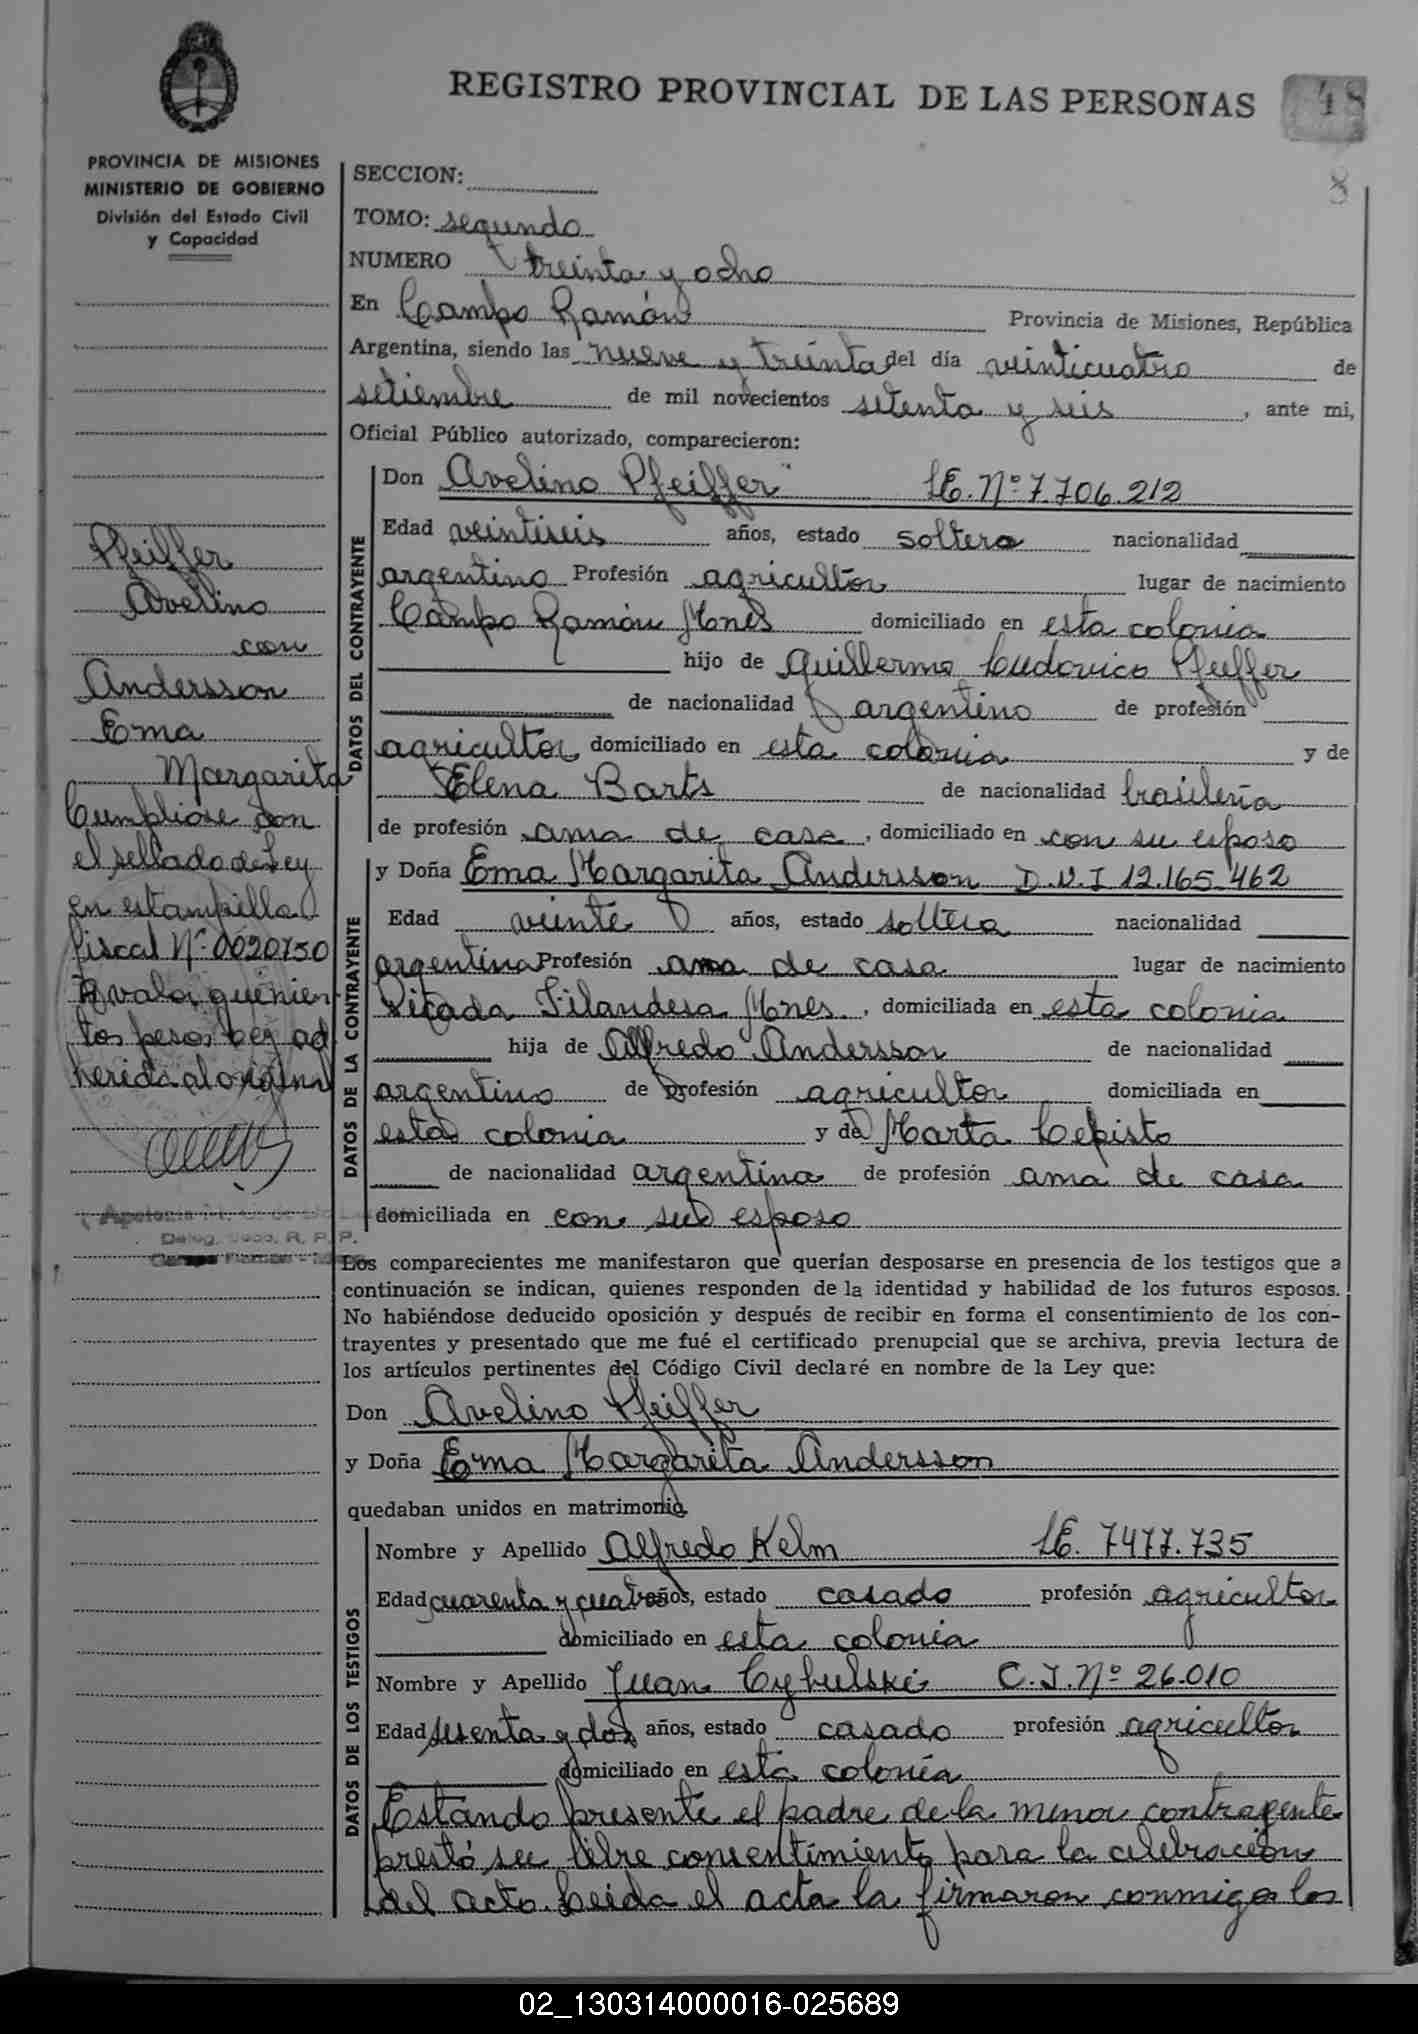 REGISTRO PROVINCIAL DE LAS PERSONAS
48
8
PROVINCIA DE MISIONES
MINISTERIO DE GOBIERNO
División del Estado Civil
y Capacidad
SECCION:
TOMO: segundo
NUMERO treinta y ocho
En Campo Ramón Provincia de Misiones, República
Argentina, siendo las nueve y treinta del día veinticuatro de
setiembre de mil novecientos setenta y seis, ante mi,
Oficial Público autorizado, comparecieron:
DATOS DEL CONTRAYENTE
Don Avelino Pfeiffer L.E. Nº 7.706.212
Edad veintiseis años, estado soltero nacionalidad
argentino Profesión agricultor lugar de nacimiento
Campo Ramón Mnes domiciliado en esta colonia
hijo de Guillermo Ludovico Pfeiffer
de nacionalidad argentino de profesión
agricultor domiciliado en esta colonia y de
Elena Barts de nacionalidad brasileña
de profesión ama de casa, domiciliado en con su esposo
DATOS DE LA CONTRAYENTE
y Doña Ema Margarita Andersson D.N.I 12.165.462
Edad veinte años, estado soltera nacionalidad
argentina Profesión ama de casa lugar de nacimiento
Picada Filandesa Mnes, domiciliada en esta colonia
hija de Alfredo Andersson de nacionalidad
argentino de profesión agricultor domiciliada en
esta colonia y de Marta Lepisto
de nacionalidad argentina de profesión ama de casa
domiciliada en con su esposo
Pfeiffer
Avelino
con
Andersson
Ema
Margarita
Cumpliose con
el sellado de Ley
en estampilla
fiscal Nº 0020750
valor quinien
tos pesos ley ad
herida al original
Campo Ramon
Los comparecientes me manifestaron que querían desposarse en presencia de los testigos que a
continuación se indican, quienes responden de la identidad y habilidad de los futuros esposos.
No habiéndose deducido oposición y después de recibir en forma el consentimiento de los con-
trayentes y presentado que me fué el certificado prenupcial que se archiva, previa lectura de
los artículos pertinentes del Código Civil declaré en nombre de la Ley que:
Don Avelino Pfeiffer
y Doña Ema Margarita Andersson
quedaban unidos en matrimonio.
DATOS DE LOS TESTIGOS
Nombre y Apellido Alfredo Kelm L.E. 7477.735
Edad cuarenta y cuatro años, estado casado profesión agricultor
domiciliado en esta colonia
Nombre y Apellido Juan Cybulski C.I. Nº 26.010
Edad sesenta y dos años, estado casado profesión agricultor
domiciliado en esta colonia
Estando presente el padre de la menor contrayente
prestó su libre consentimiento para la celebración
del acto. Leida el acta la firmaron conmigo los
02_130314000016-025689